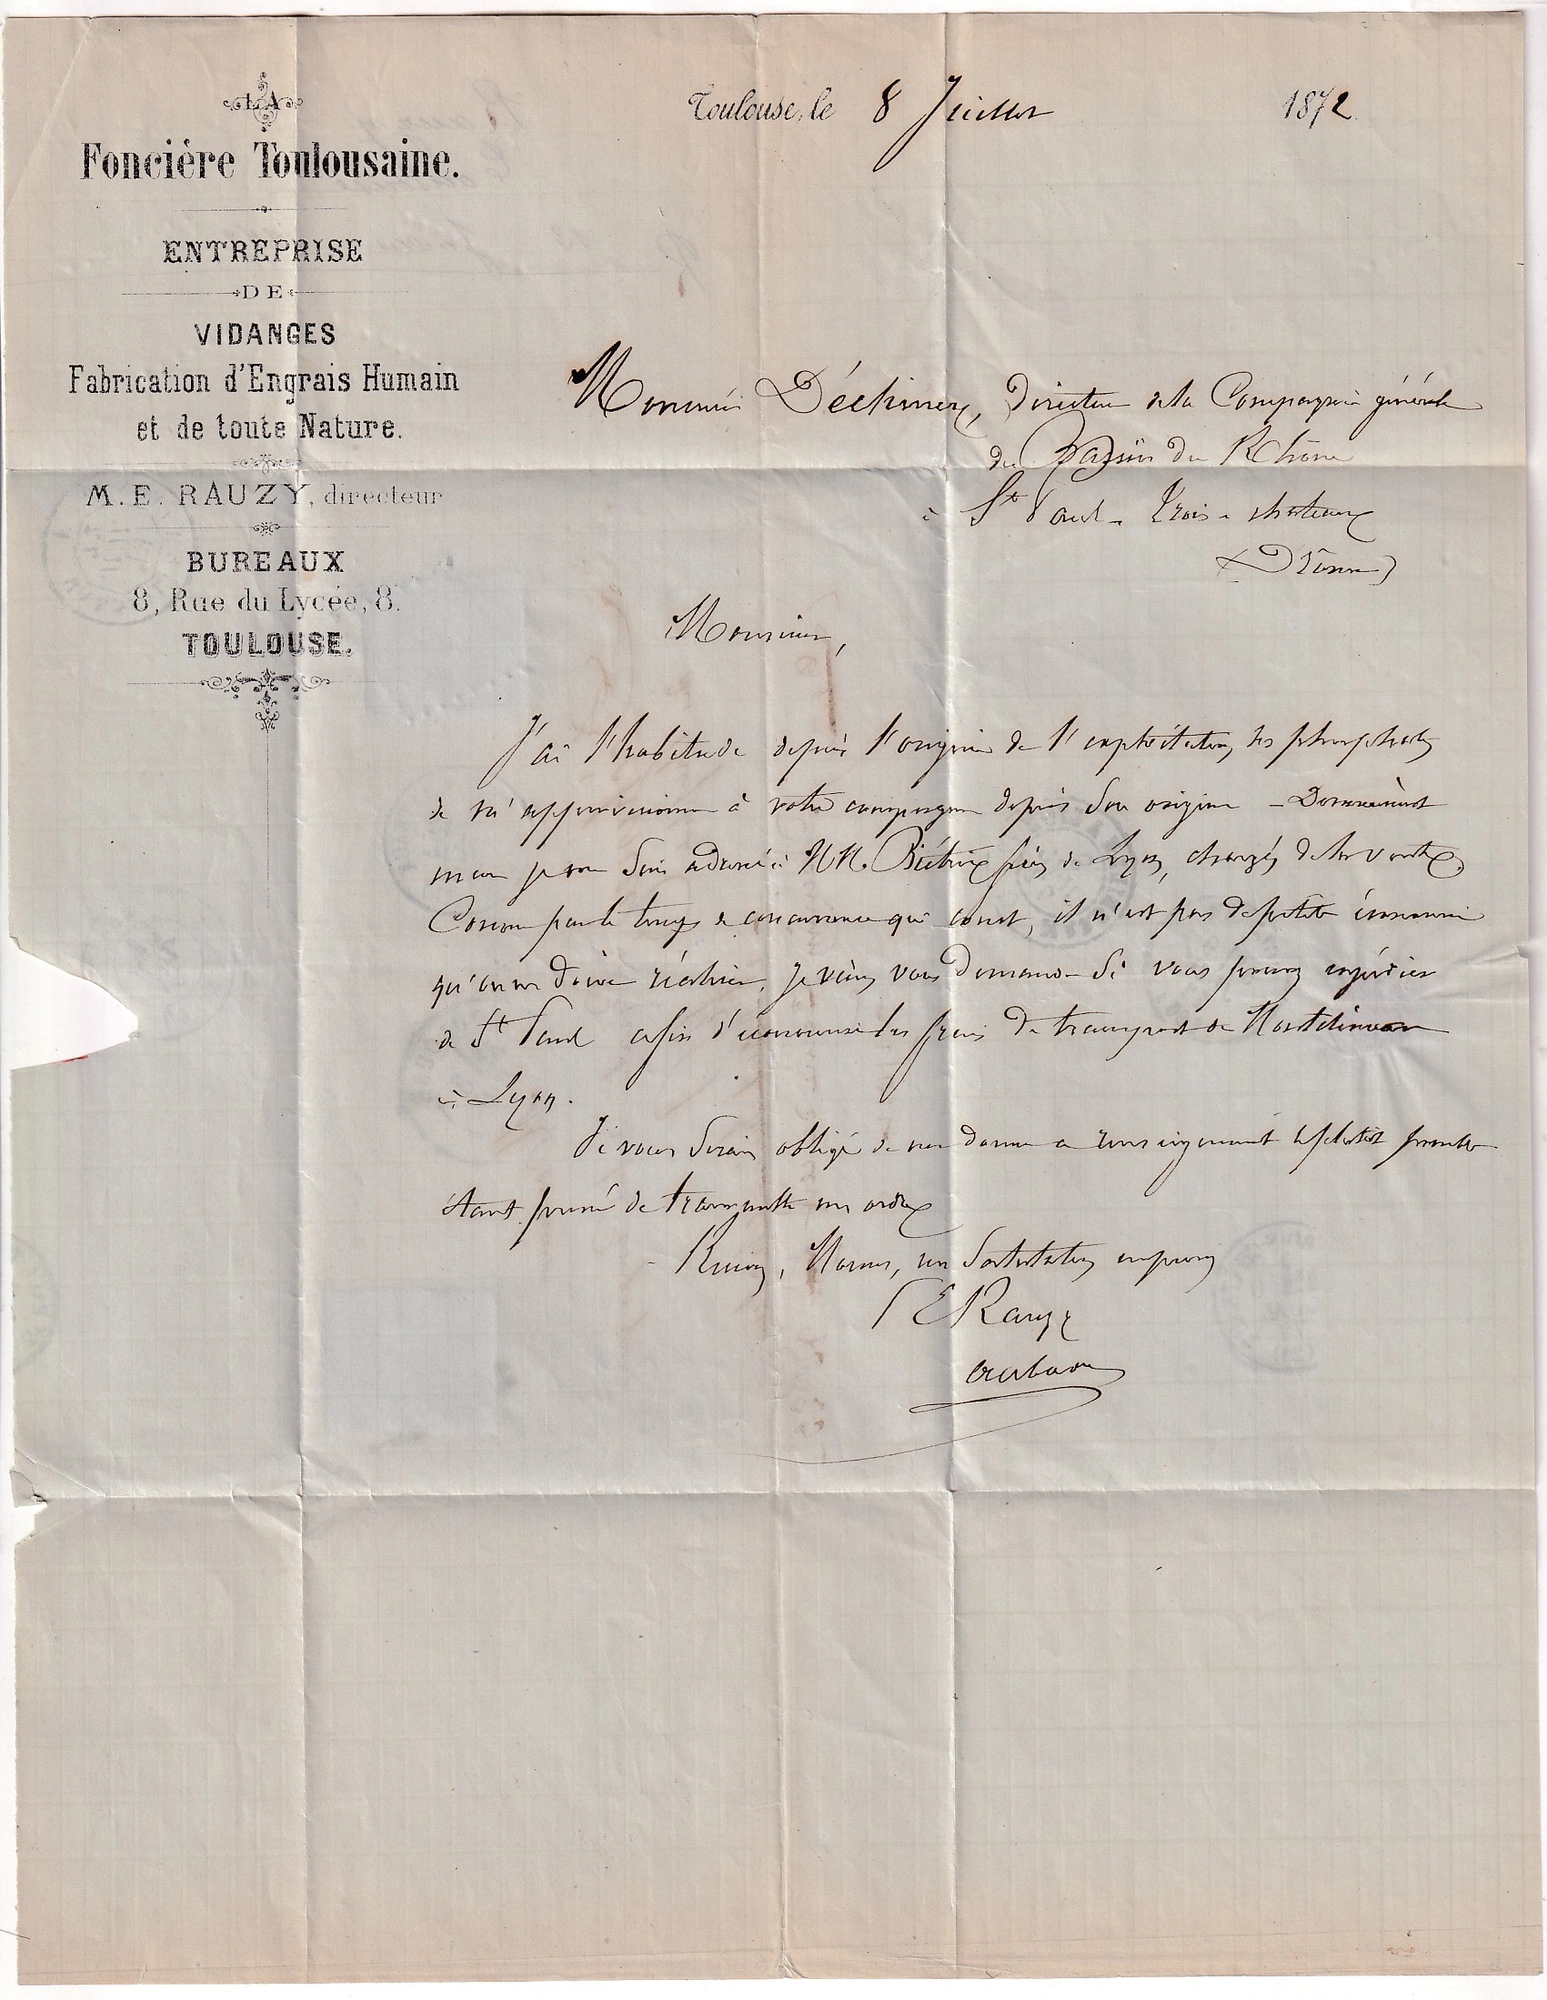 LA
Foncière Toulousaine.
ENTREPRISE
DE
VIDANGES
Fabrication d'Engrais Humain
et de toute Nature.
M. E. RAUZY, directeur
BUREAUX
8, Rue du Lycée, 8.
TOULOUSE.
Toulouse, le 8 Juillet 1872
Monsieur Déchimery, Directeur de la Compagnie générale
du Bassin du Rhône
à St Paul-Trois-Châteaux
(Drôme)
Monsieur,
J'ai l'habitude depuis l'origine de l'exploitation des phosphates
de m'approvisionner à votre compagnie depuis son origine
me suis adressé à MM. frères de Lyon, chargés de la vente
Comme par le temps de concurrence qui court, il n'est pas de petite économie
qu'on ne doive réaliser, je viens vous demander si vous pouvez expédier
de St Paul afin d'économiser les frais de transport de Montélimar
à Lyon.
Je vous serais obligé de me donner ce renseignement le plutôt possible
étant pressé de transmettre un ordre
Recevez, Monsieur, mes salutations empressées
E Rauzy